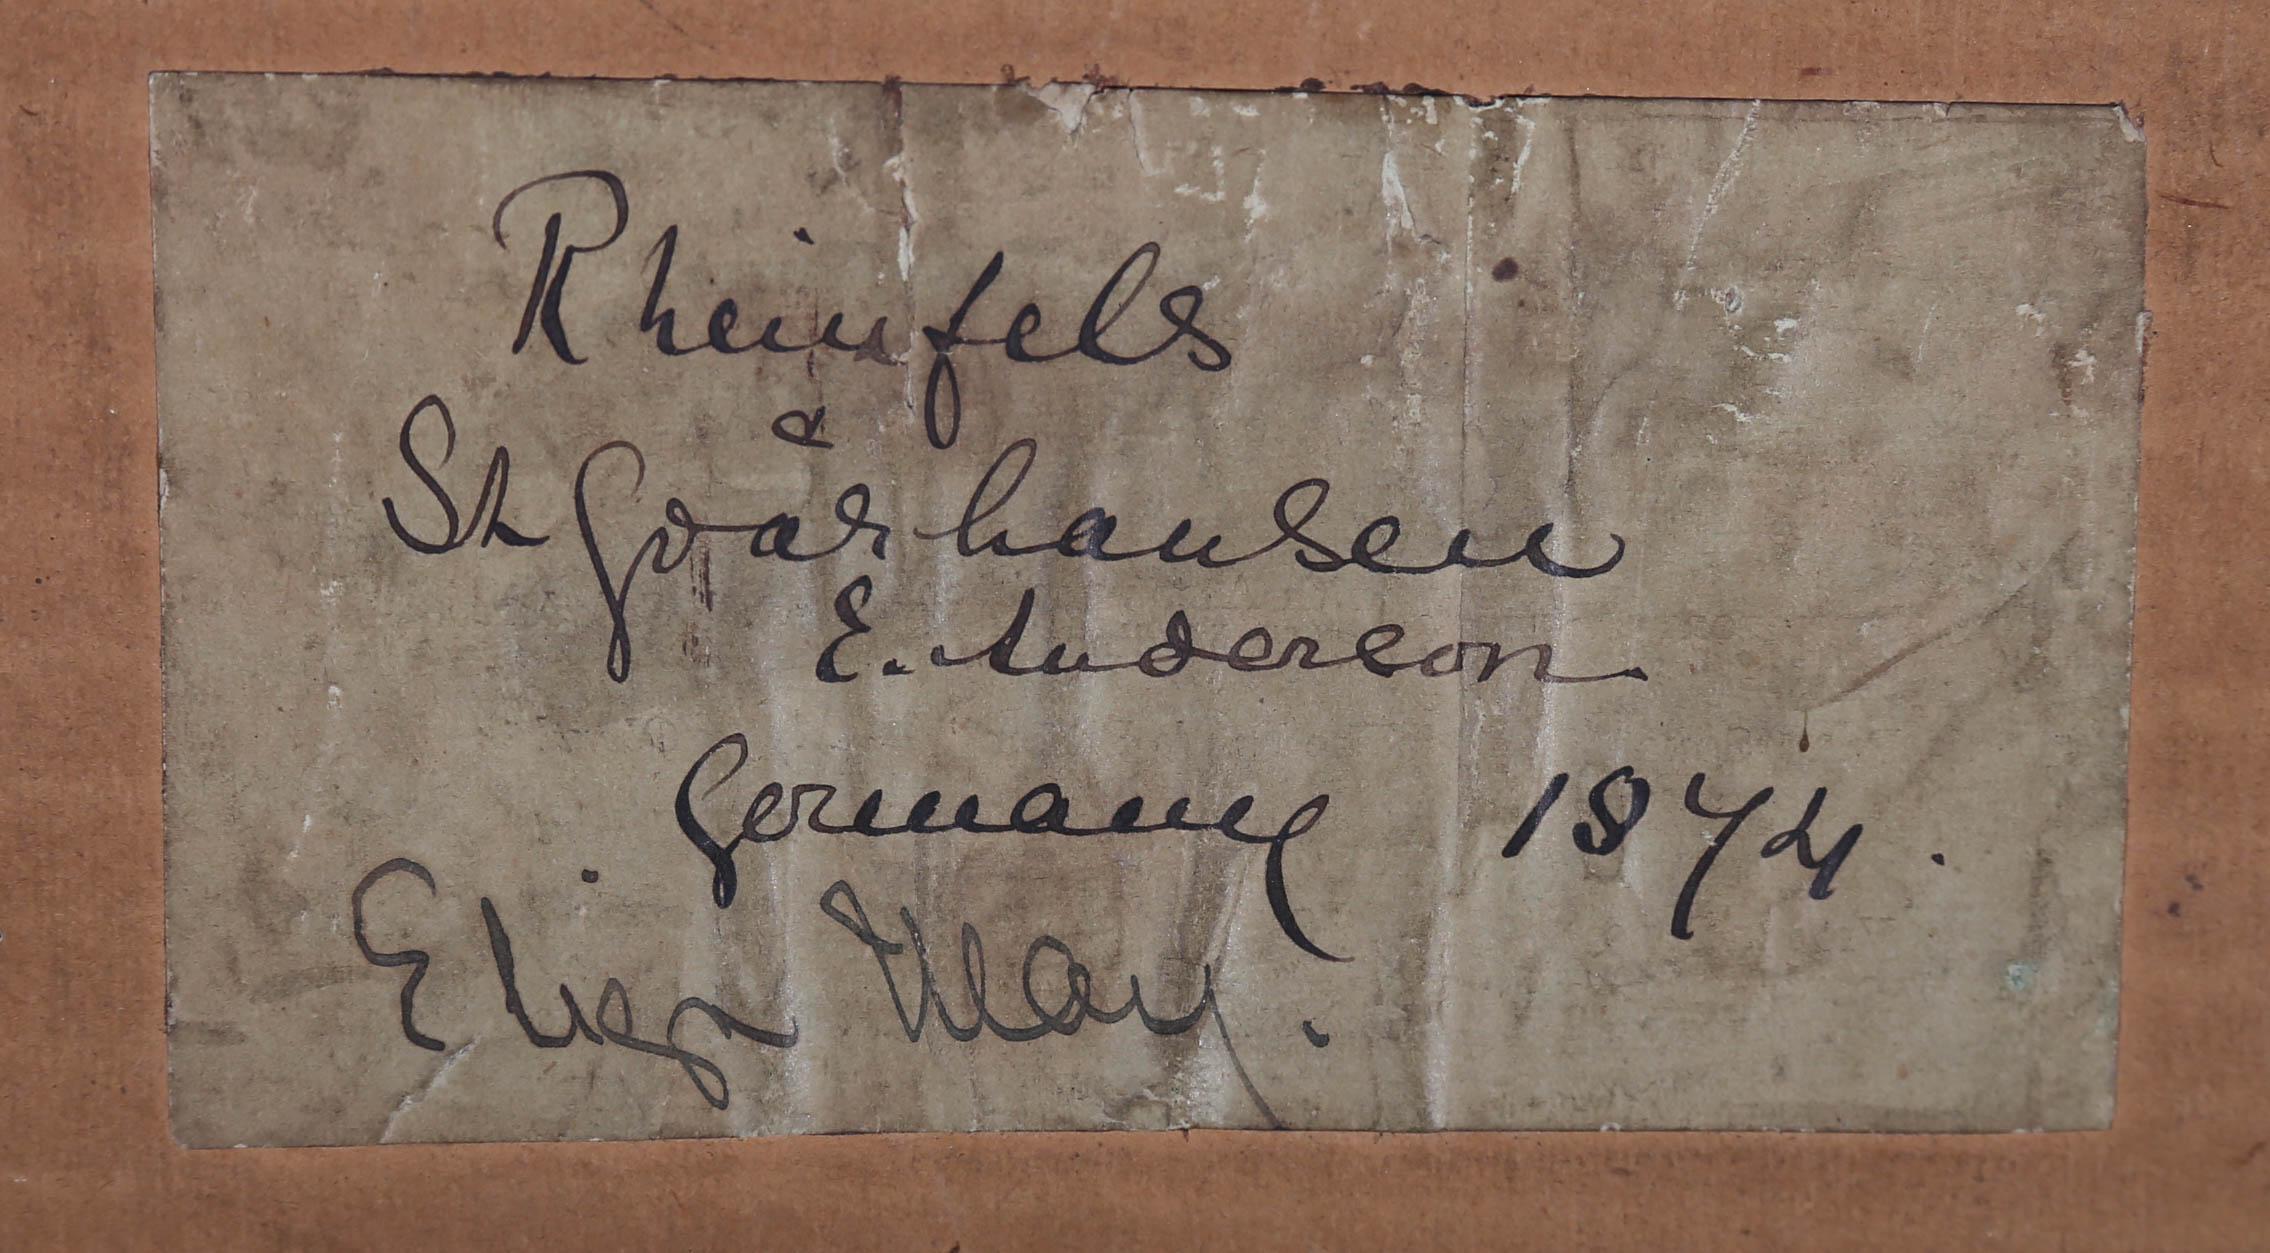 Rheinfels
&
St Goarshausen
E. Anderson.
Germany 1874.
Eliza May.